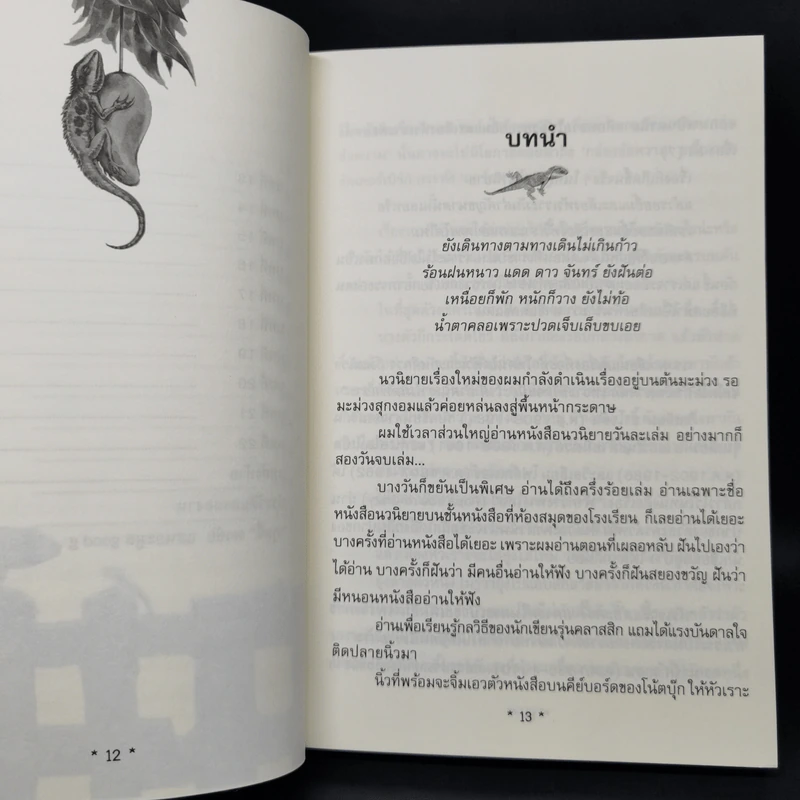 * 12 *
บทนำ
ยังเดินทางตามทางเดินไม่เกินก้าว
ร้อนฝนหนาว แดด ดาว จันทร์ ยังฝันต่อ
เหนื่อยก็พัก หนักก็วาง ยังไม่ท้อ
น้ำตาคลอเพราะปวดเจ็บเล็บขบเอย
นวนิยายเรื่องใหม่ของผมกำลังดำเนินเรื่องอยู่บนต้นมะม่วง รอ
มะม่วงสุกงอมแล้วค่อยหล่นลงสู่พื้นหน้ากระดาษ
ผมใช้เวลาส่วนใหญ่อ่านหนังสือนวนิยายวันละเล่ม อย่างมากก็
สองวันจบเล่ม...
บางวันก็ขยันเป็นพิเศษ อ่านได้ถึงครึ่งร้อยเล่ม อ่านเฉพาะชื่อ
หนังสือนวนิยายบนชั้นหนังสือที่ห้องสมุดของโรงเรียน ก็เลยอ่านได้เยอะ
บางครั้งที่อ่านหนังสือได้เยอะ เพราะผมอ่านตอนที่เผลอหลับ ฝันไปเองว่า
ได้อ่าน บางครั้งก็ฝันว่า มีคนอื่นอ่านให้ฟัง บางครั้งก็ฝันสยองขวัญ ฝันว่า
มีหนอนหนังสืออ่านให้ฟัง
อ่านเพื่อเรียนรู้กลวิธีของนักเขียนรุ่นคลาสสิก แถมได้แรงบันดาลใจ
ติดปลายนิ้วมา
นิ้วที่พร้อมจะจิ้มเอวตัวหนังสือบนคีย์บอร์ดของโน้ตบุ๊ก ให้หัวเราะ
* 13 *